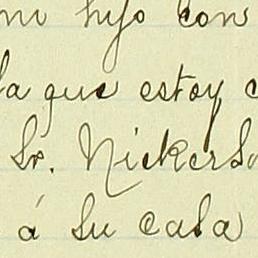 mi hijo con
la que estoy
Sr. Nickerso
á su casa